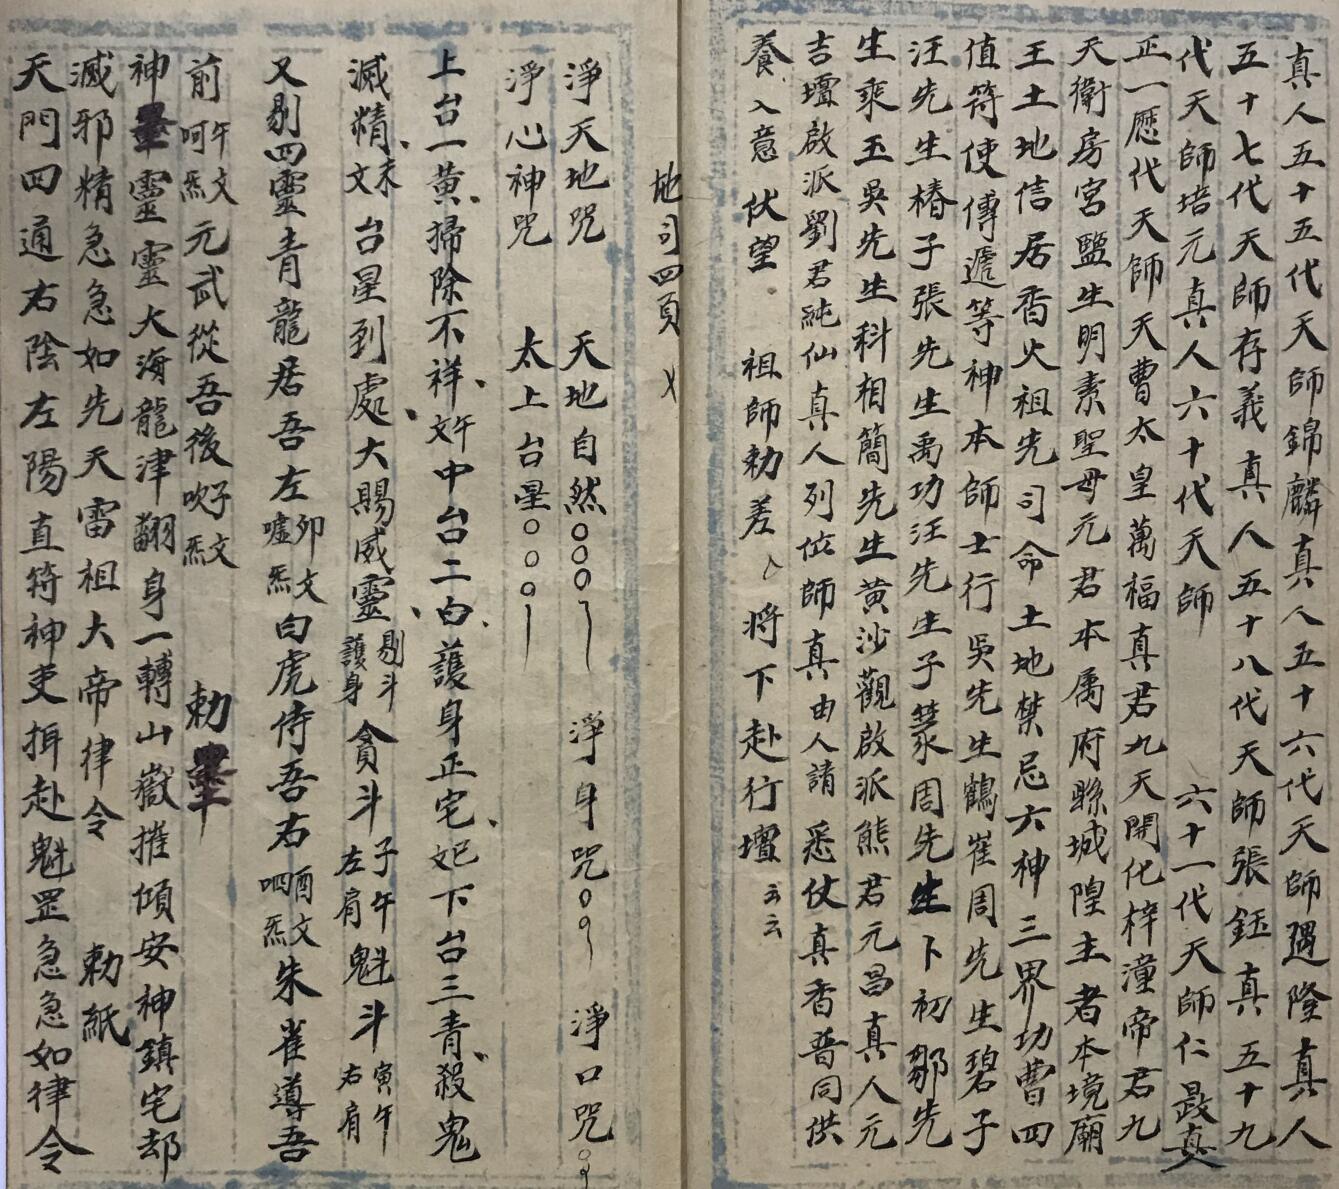 真人五十五代天師錦麟真人五十六代天師遇隆真人
五十七代天師存義真人五十八代天師張鈺真五十九
代天師培元真人六十代天師 六十一代天師仁晸真
正一歷代天師天曹太皇萬福真君九天開化梓潼帝君九
天衛房宮監生明素聖母元君本屬府縣城隍主者本境廟
王土地信居香火祖先司命土地禁忌六神三界功曹四
值符使傳遞等神本師士行吳先生鶴崔周先生碧子
汪先生椿子張先生禹功汪先生子篆周先生卜初鄒先
生乘玉吳先生科相簡先生黃沙觀啟派熊君元昌真人元
吉壇啟派劉君純仙真人列位師真由人請悉仗真香普同供
養入意伏望 祖師勅差 將下赴行壇云云
地司四頁
淨天地咒 天地自然○○○ 淨身咒○○ 淨口咒○
淨心神咒 太上台星○○○
上台一黃掃除不祥午文中台二白護身正宅巳文下台三青殺鬼
滅精未文台星到處大賜威靈剔斗護身貪斗子午左肩魁斗寅午右肩
又剔四靈青龍居吾左卯文噓炁白虎侍吾右酉文呬炁朱雀導吾
前午文呵炁元武從吾後子文吹炁 勅墨
神墨靈靈大海龍津翻身一轉山嶽摧傾安神鎮宅却
滅邪精急急如先天雷祖大帝律令 勅紙
天門四通右陰左陽直符神吏揖赴魁罡急急如律令